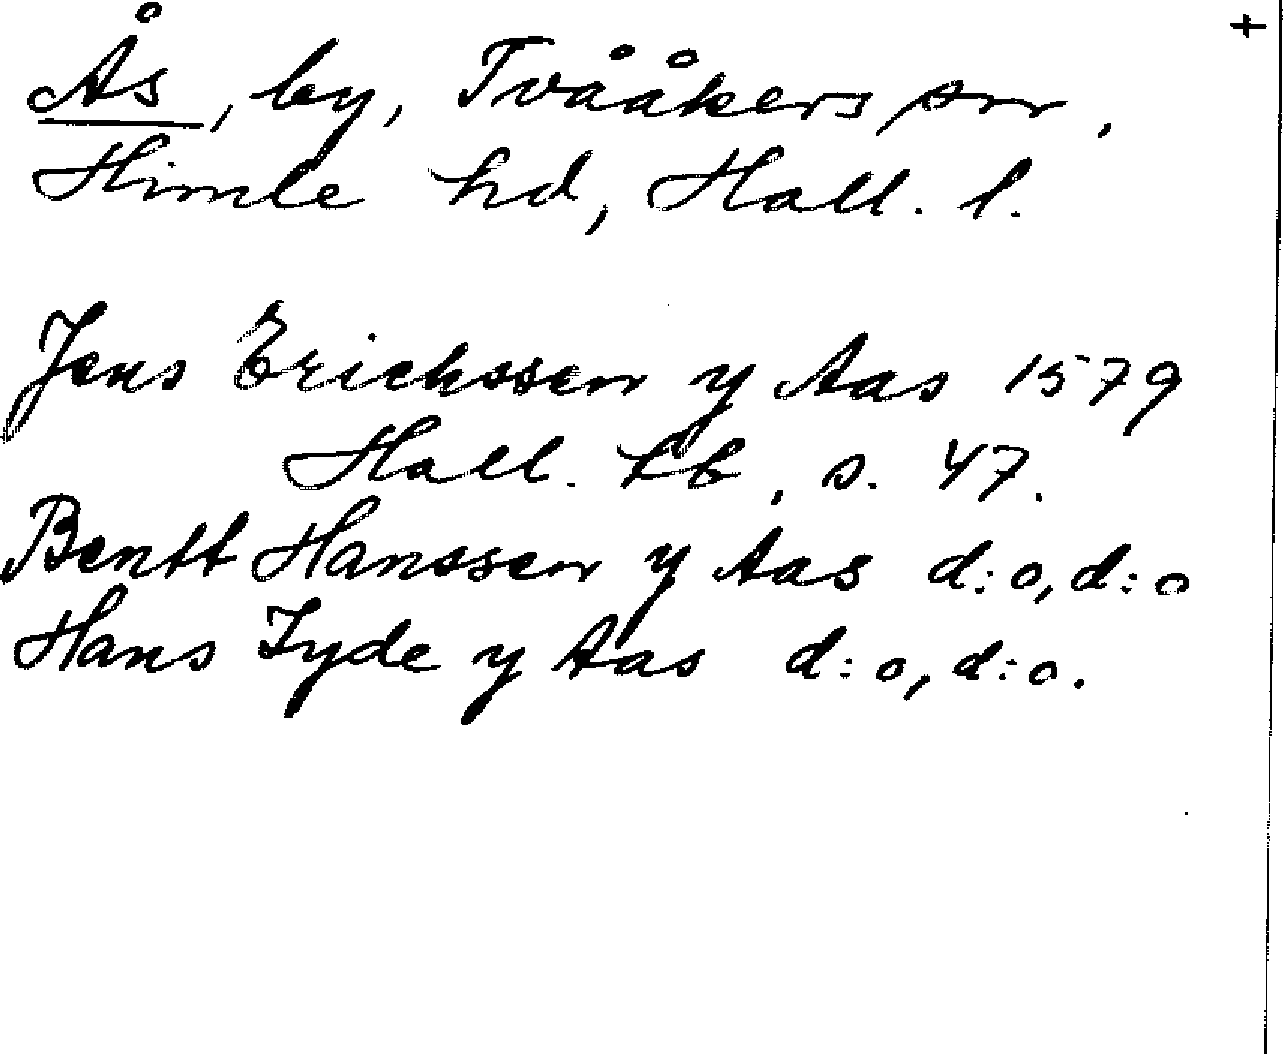 +
Ås, by, Tvååkers sn,
Himle hd, Hall. l.
Jens Erickssen y Aas 1579
Hall. lb, s. 47.
Bentt Hanssen y Aas d:o, d:o
Hans Jyde y Aas d:o, d:o.